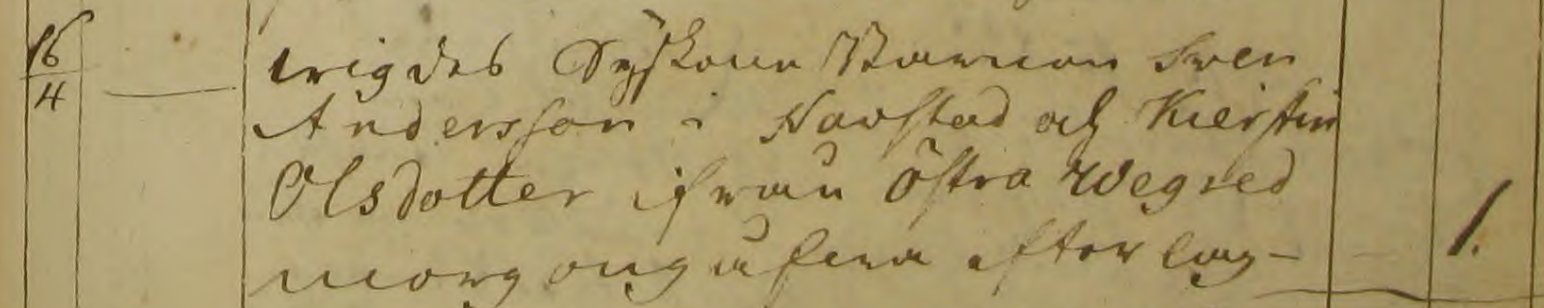 16/4 wigdes Syskone Barnen Sven 1.
Andersson i Navstad och Kierstin
Olsdotter ifrån Östra Wegred
morgongåfva efter lag-